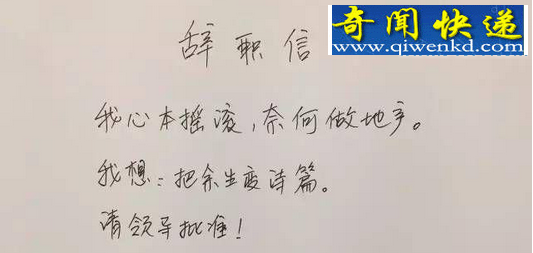 奇闻快递
www.qiwenkd.com
辞职信
我心本摇滚,奈何做地产。
我想:把余生变诗篇。
请领导批准!